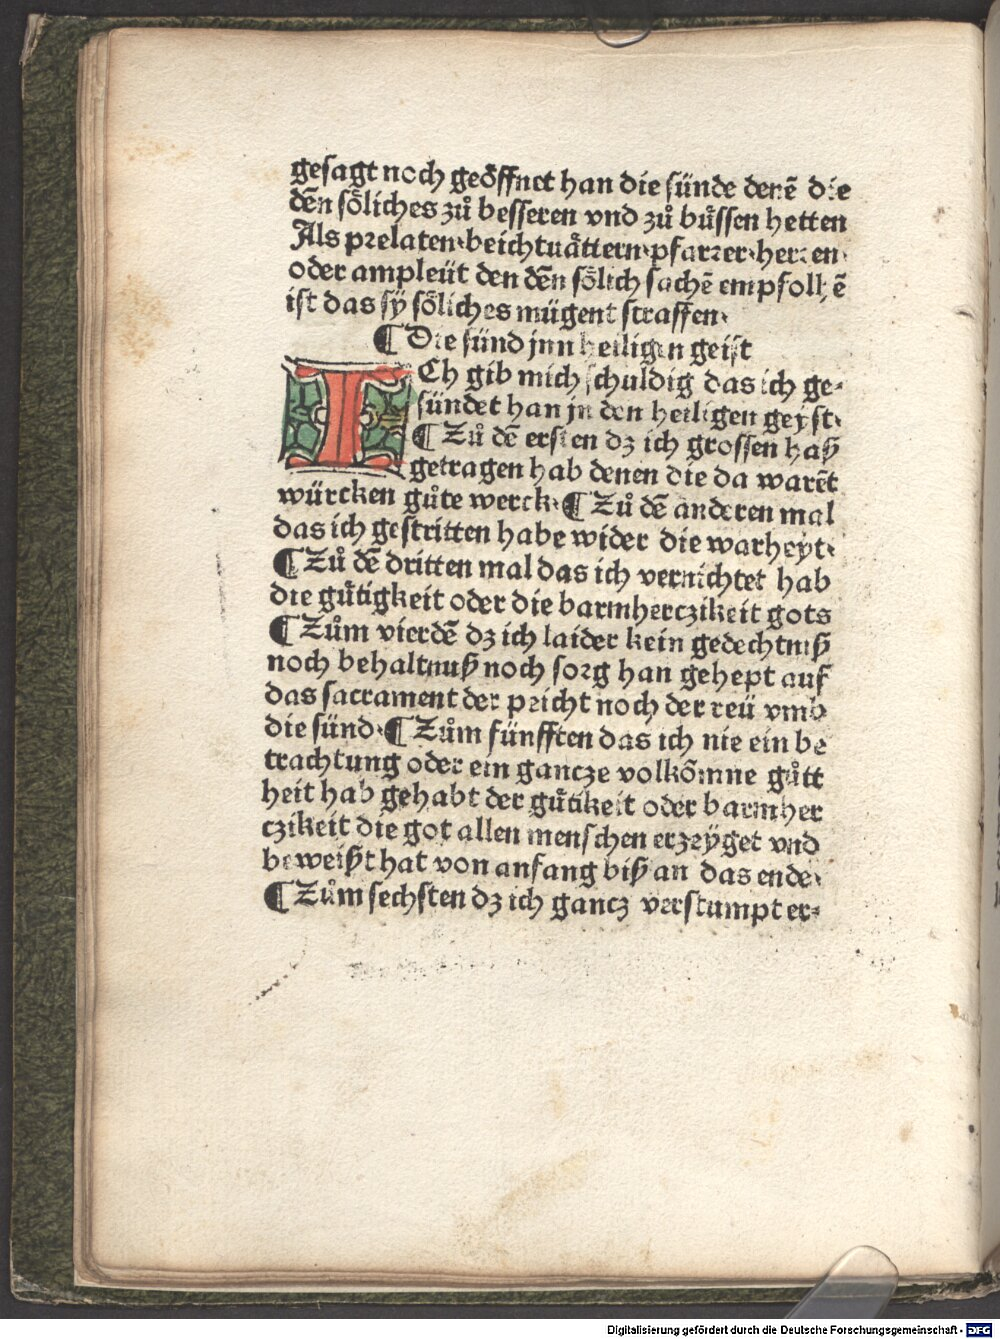 gesagt noch geöffnet han die sünde denē die
dēn söliches zů besseren vnd zů bůssen hetten
Als prelaten·beichtuåttern·pfarrer·herren·
oder ampleüt den dēn sölich sachē empfolhē
ist das sÿ söliches mügent straffen·
¶ Die sünd jnn heiligen geist
ICh gib mich schuldig das ich ge⸗
sündet han jn den heiligen geyst·
¶ Zů dē ersten dz ich grossen haß
getragen hab denen die da warēt
würcken gůte werck·¶ Zů dē anderen mal
das ich gestritten habe wider die warheyt·
¶ Zů dē dritten mal das ich vernichtet hab
die gůtigkeit oder die barmherczikeit gots
¶ Zům vierdē dz ich laider kein gedechtniß
noch behaltnuß noch sorg han gehept auf
das sacrament der peicht noch der reü vmb
die sünd·¶ Zům fünfften das ich nie ein be
trachtung oder ein gancze volkōmne gůtt
heit hab gehabt der gůtikeit oder barmher
czikeit die got allen menschen erzeÿget vnd
beweißt hat von anfang biß an das ende·
¶ Zům sechsten dz ich gancz verstumpt er⸗
Digitalisierung gefördert durch die Deutsche Forschungsgemeinschaft - DFG